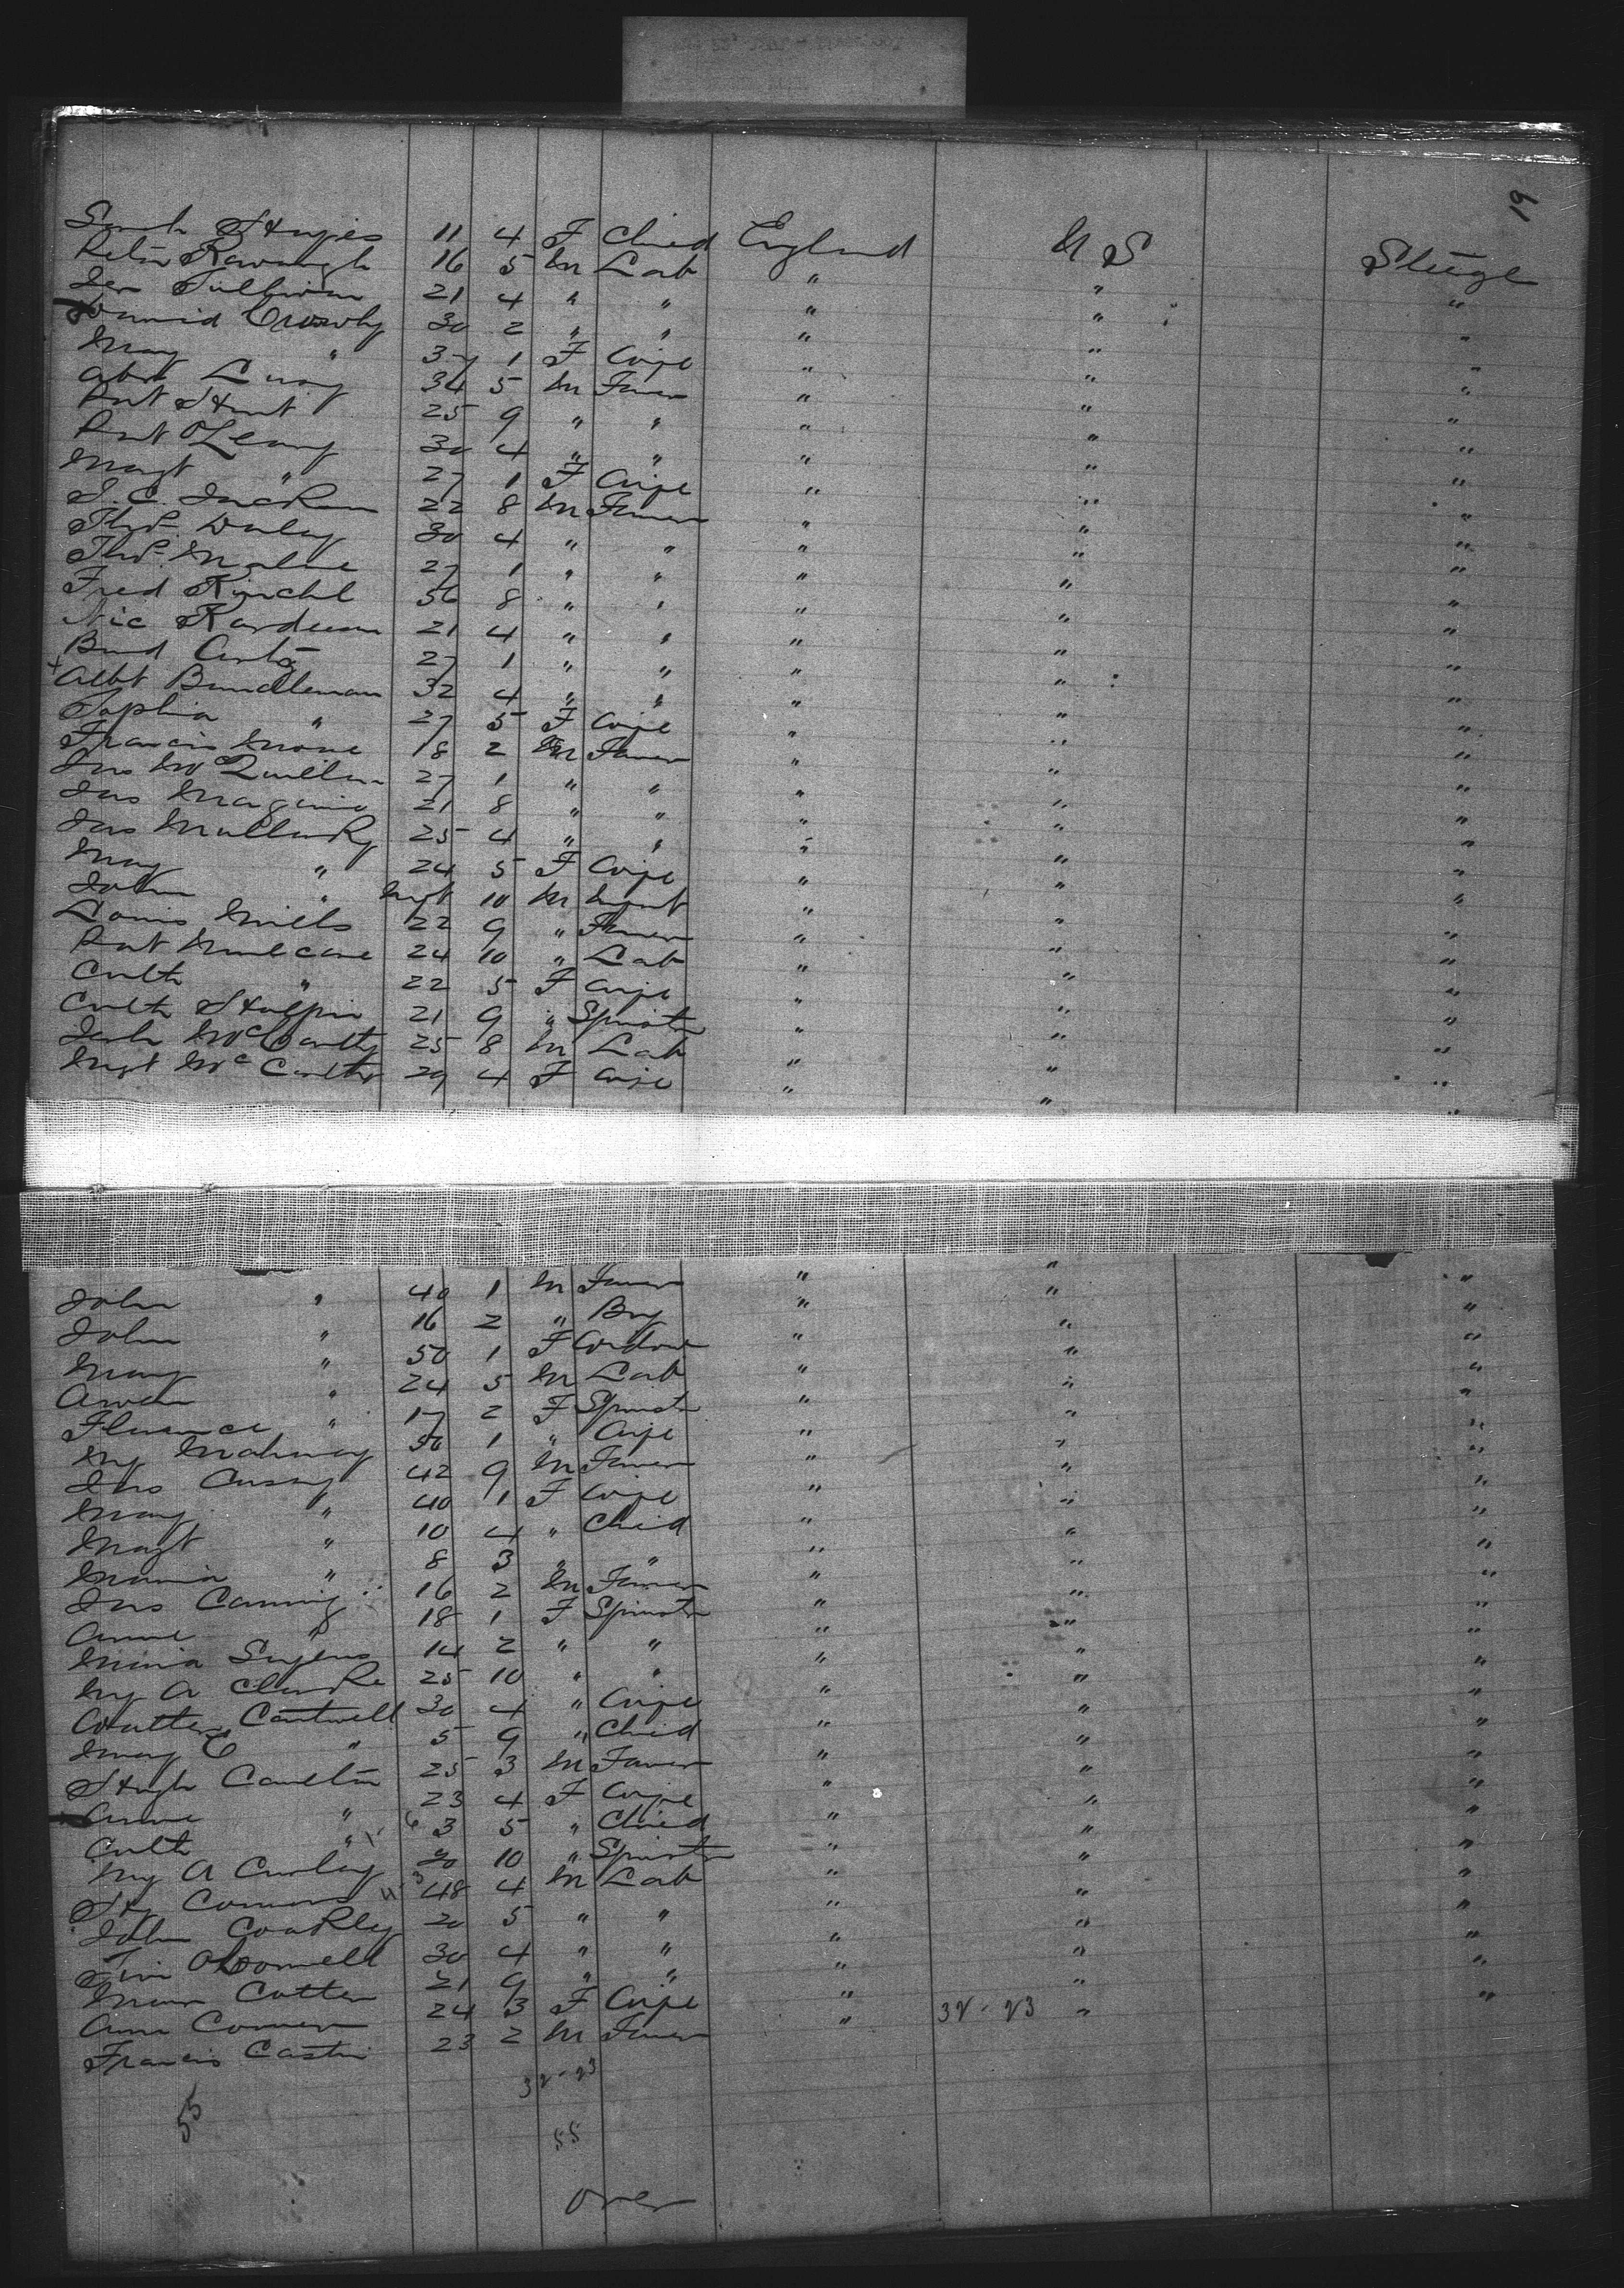 19
Sarah Hughes 11 4 F Child England U S Steerge
Peter Kavanagh 16 5 M Lab " " "
Jer Sullivan 21 4 " " " " "
Daniel Crowly 30 2 " " " " "
Mary " 37 1 F Wife " " "
Abr 34 5 M Farmer " " "
Pat Hunt 25 9 " " " " "
Pat O'Leary 30 4 " " " " "
Magt " 27 1 F Wife " " "
22 8 M Farmer " " "
Thos Daley 30 4 " " " " "
Thos Malone 27 1 " " " " "
Fred 56 8 " " " " "
Nic 21 4 " " " " "
27 1 " " " " "
x Albt Bundleman 32 4 " " " " "
Sophia " 27 5 F Wife " " "
Francis Moore 18 2 M Farmer " " "
Jno McQuillan 27 1 " " " " "
Jas Maguire 21 8 " " " " "
Jas Mullarky 25 4 " " " " "
May " 24 5 F Wife " " "
John " Inft 10 M Infant " " "
Louis Mills 22 9 " Farmer " " "
Pat Mulcare 24 10 " Lab " " "
Cath " 22 5 F Wife " " "
Cath Halpin 21 9 " Spinstr " " "
Jerh McCarthy 25 8 M Lab " " "
Magt McCarthy 29 4 F Wife " " "
John " 40 1 M Farmer " " "
John " 16 2 " Boy " " "
Mary " 50 1 F Widow " " "
Owen " 24 5 M Lab " " "
Florence " 17 2 F Spinstr " " "
My Mahoney 50 1 " Wife " " "
Jno Cussey 42 9 M Farmer " " "
Mary " 40 1 F Wife " " "
Magt " 10 4 " Child " " "
Maria " 8 3 " " " " "
Jno Canning 16 2 M Farmer " " "
Anne " 18 1 F Spinstr " " "
Maria 14 2 " " " " "
My A Clarke 25 10 " " " " "
Cantwell 30 4 " Wife " " "
Mary E " 5 9 " Child " " "
Hugh Carelton 25 3 M Farmer " " "
Anne " 23 4 F Wife " " "
Cath " 3 5 " Child " " "
My A Curley 20 10 " Spinstr " " "
Hy Connors 48 4 M Lab " " "
John Coakley 20 5 " " " " "
Tim O'Connell 30 4 " " " " "
Cotter 21 9 " " " " "
Ann Connor 24 3 F Wife " " "
Francis Castin 23 2 M Farmer " 32-23 "
32-23
55
55
Over